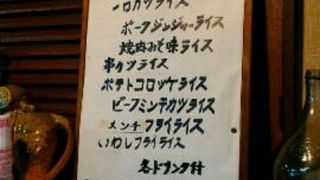 一口カツライス
ポークジンジャーライス
焼肉みそ味ライス
串カツライス
ポテトコロッケライス
ビーフミンチカツライス
メンチフライライス
いわしフライライス
各ドリンク付